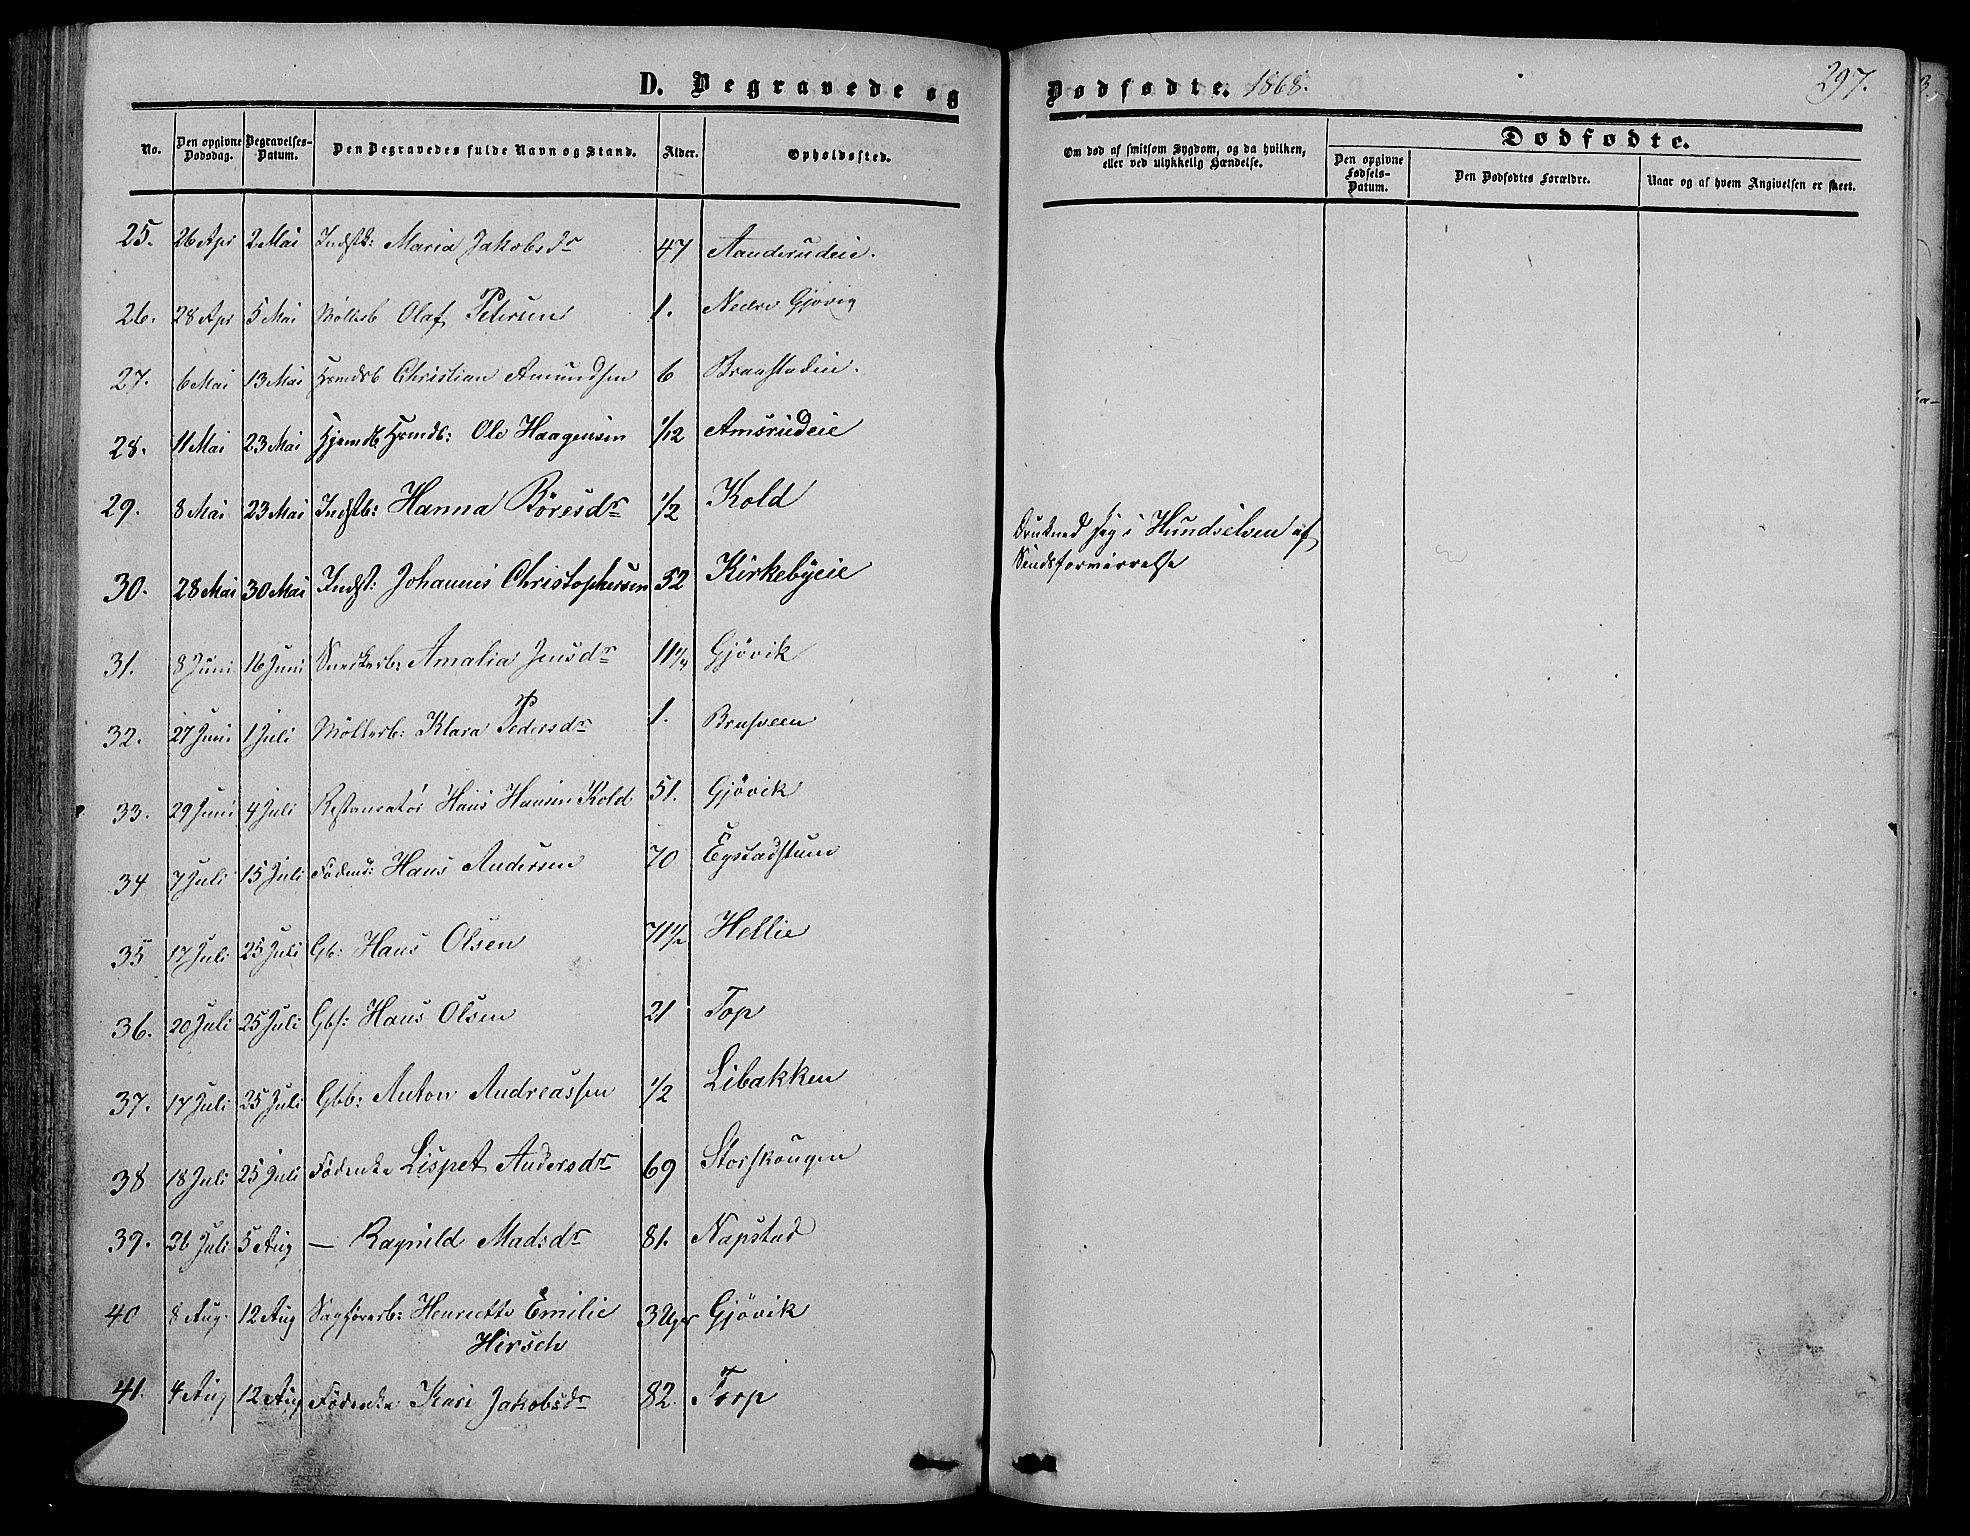 D. Begravede og Dødfødte. 1868. 297.
No. Den opgivne Dødsdag. Begravelses-Datum. Den Begravedes fulde Navn og Stand. Alder. Opholdssted. Om død af smitsom Sygdom, og da hvilken, eller ved ulykkelig Hændelse. Dødfødte. Den opgivne Fødsels-Datum. Den Dødfødtes Forældre. Naar og af hvem Angivelsen er skeet.
25. 26 Apr 2 Mai Indstk: Maria Jakobsdr 47 Aanderudeie.
26. 28 Apr 5 Mai Møllerb Olaf Petersen 1. Nedre Gjøvig
27. 6 Mai 13 Mai Hsmdsb Christian Amundsen 6 Braastadeie.
28. 11 Mai 23 Mai Hsmdb: Ole Haagensen 1/12 Amsrudeie
29. 8 Mai 23 Mai Indstb: Hanna Böresdr 1/2 Kold
30. 28 Mai 30 Mai Indst: Johannes Christophersen 52 Kirkebyeie Drukned sig i Hundselven af
Sindsforvirrelse
31. 8 Juni 16 Juni Snedkerb: Amalia Jensdr 11 1/4 Gjövik
32. 27 Juni 1 Juli Möllerb: Klara Pedersdr 1. Brusveen
33. 29 Juni 4 Juli Restauratör Hans Hansen Kold 51. Gjövik
34 7 Juli 15 Juli Föderd: Hans Andersen 70 Eystadstuen
35 17 Juli 25 Juli Gb: Hans Olsen 71 1/2 Hellie
36. 20 Juli 25 Juli Gbs: Hans Olsen 21 Top
37. 17 Juli 25 Juli Gbb: Anton Andreassen 1/2 Libakken
38 18 Juli 25 Juli Föderke Lispet Andersdr 69 Storskougen
39. 31 Juli 5 Aug — Ragnild Madsdr 81. Napstad
40 8 Aug. 12 Aug Sagförerb: Henriette Emilie 3 Uger Gjövik
Hirsch
41. 4 Aug 12 Aug Föderke Kari Jakobsdr 82. Torp